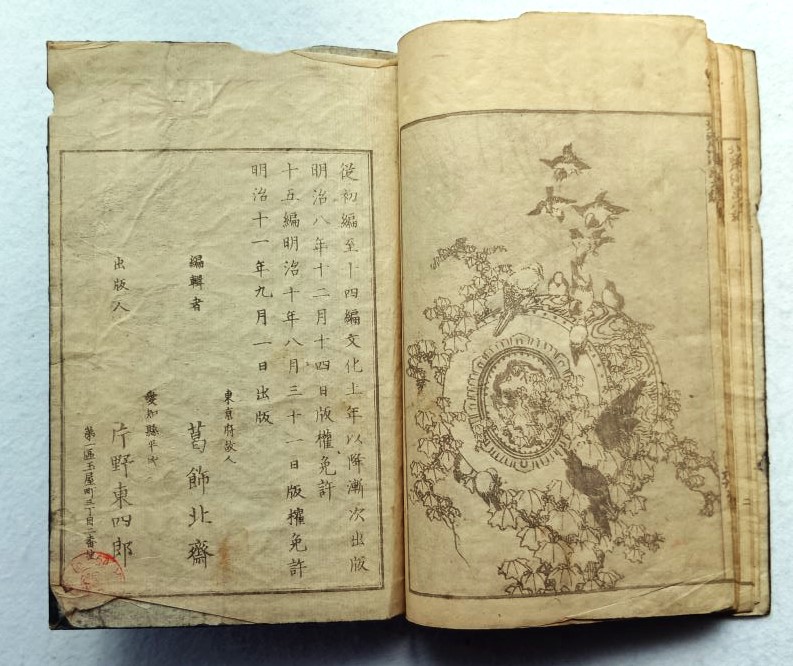 從初編至十四編文化上年以降漸次出版
明治八年十二月十四日版權免許
十五編明治十年八月三十一日版權免許
明治十一年九月一日出版
東京府故人
編輯者 葛飾北齋
愛知縣平民
出版人 片野東四郎
第一區玉屋町三丁目二番地